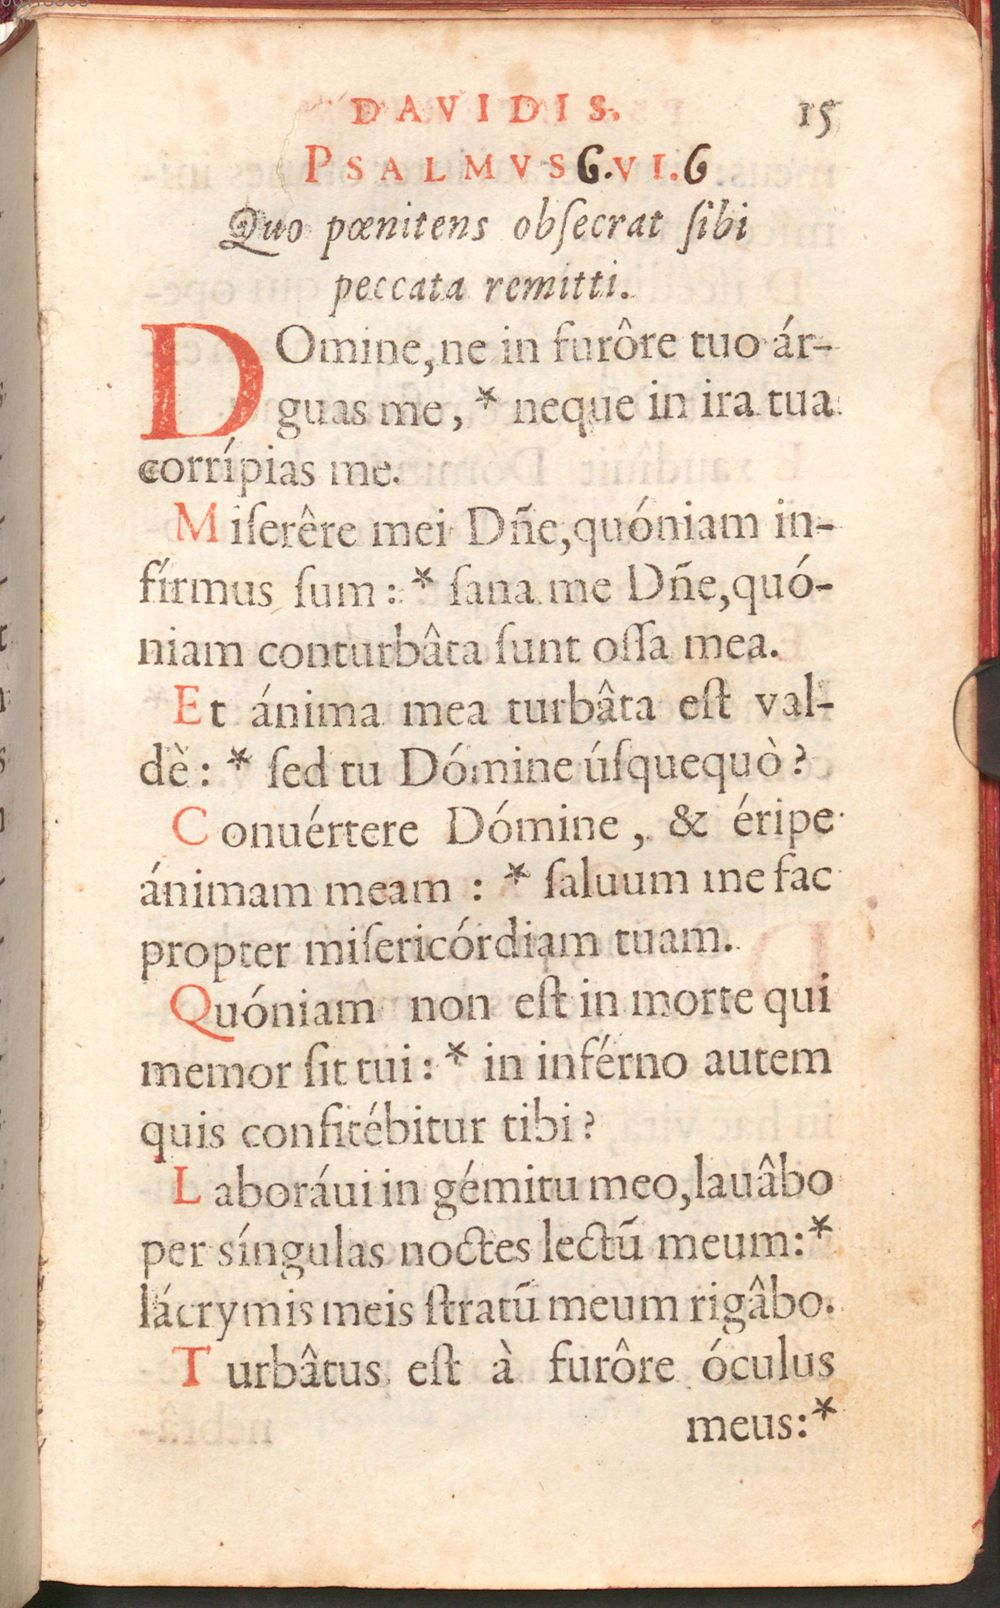 DAVIDIS. 15
PSALMVS 6. VI. 6
Quo pœnitens obſecrat ſibi
peccata remitti.
DOmine, ne in furôre tuo ár-
guas me, * neque in ira tua
corrípias me.
Miſerêre mei Dñe, quóniam in-
fírmus ſum: * ſana me Dñe, quó-
niam conturbâta ſunt oſſa mea.
Et ánima mea turbâta eſt val-
dè: * ſed tu Dómine úſquequò?
Conuértere Dómine, & éripe
ánimam meam : * ſaluum me fac
propter miſericórdiam tuam.
Quóniam non eſt in morte qui
memor ſit tui: * in inférno autem
quis confitébitur tibi?
Laboráui in gémitu meo, lauâbo
per síngulas noctes lectũ meum: *
lácrymis meis ſtratũ meum rigâbo.
Turbâtus eſt à furôre óculus
meus: *